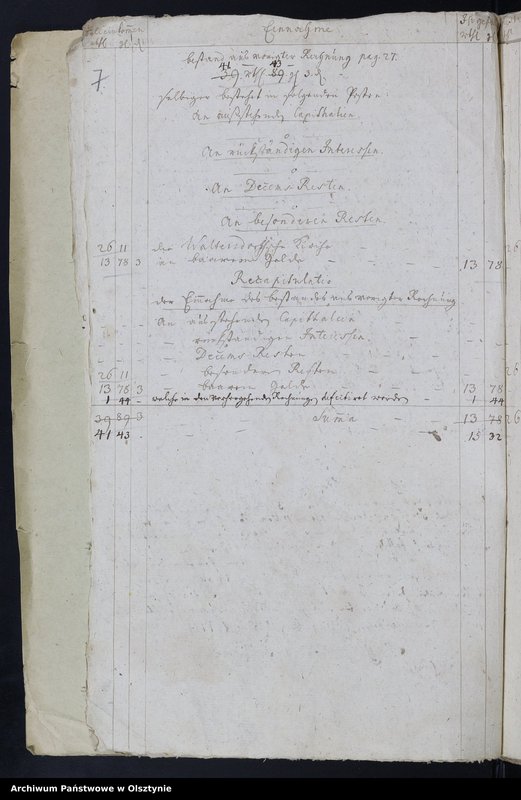 Einnahme
rthl gl
bestand aus voriger Rechnung pag. 27.
41 43
39. rthl 89 gl 3 d.
7
selbiger bestehet in folgenden Posten:
An ausstehenden Capithalien
0
An rückständigen Interessen.
0
An Decems Resten.
0
An besonderen Resten
26 11 der Waltersdorfische Kirche 26
13 78 3 an baarem Gelde 13 78
Recapitulatio
der Einnahme des bestandes aus voriger Rechnung
An ausstehenden Capithalien
rückständigen Interessen
Decems Resten
26 11 besondern Resten 26
13 78 3 baarem Gelde 13 78
1 44 welche in den vorhergehenden Rechnungen deficitiret worden 1 44
39 89 3 Summa 13 78 26
41 43 15 32
Archiwum Państwowe w Olsztynie